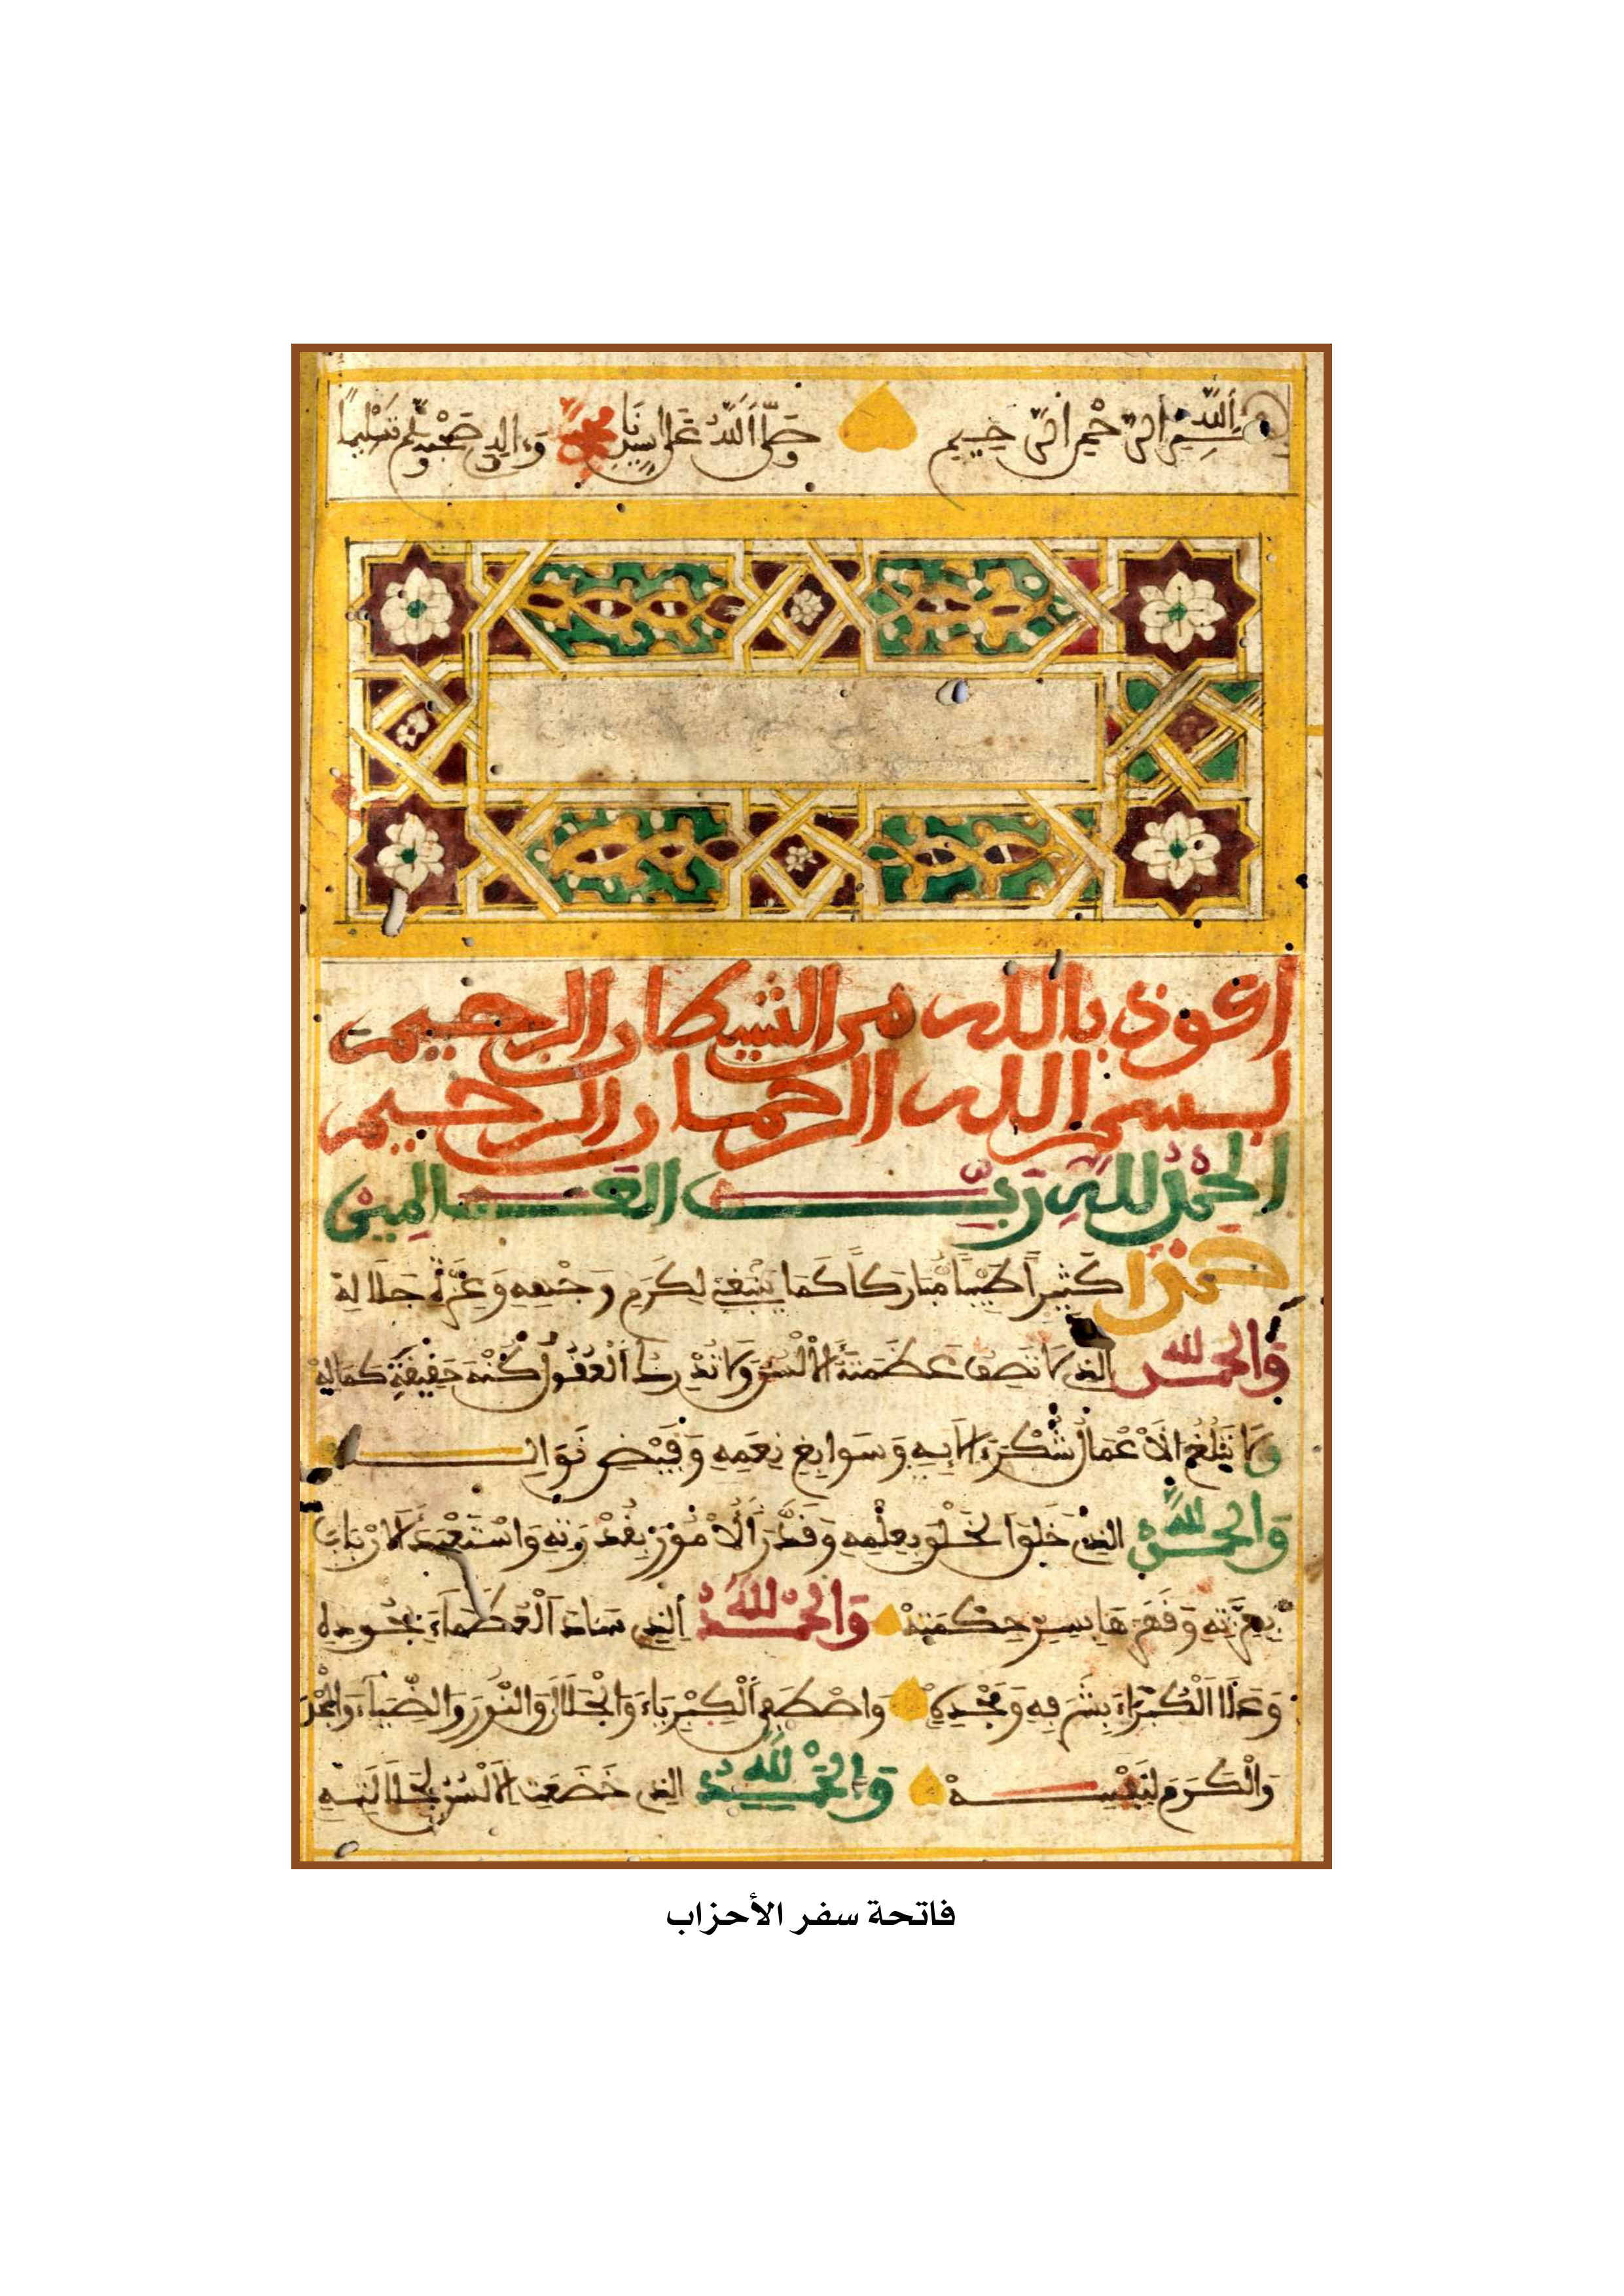 بِسْمِ اللَّهِ الرَّحْمَنِ الرَّحِيمِ وَصَلَّى اللَّهُ عَلَى سَيِّدِنَا مُحَمَّدٍ وَءَالِهِ وَصَحْبِهِ وَسَلَّمَ تَسْلِيمًا
أعوذ بالله من الشيطان الرجيم
بسم الله الرحمان الرحيم
الحَمْدُ لِلَّهِ رَبِّ العَالَمِينَ
حَمْدًا كَثِيرًا طَيِّبًا مُّبَارَكًا كَمَا يَنْبَغِي لِكَرَمِ وَجْهِهِ وَعِزَّةِ جَلَالِهْ
وَالحَمْدُ لله الذِي لَا تَصِفُ عَظَمَتَهُ الْأَلْسُنُ وَلَا تُدْرِكُ الْعُقُولُ كُنْهَ حَقِيقَةِ كَمَالِهْ
وَلَا تَبْلُغُ الْأَعْمَالُ شُكْرَ ءَالَائِهِ وَسَوَابِغِ نِعَمِهِ وَفَيْضِ نَوَالِهِ
وَالحَمْدُ لله الذِي خَلَقَ الْخَلْقَ بِعِلْمِهِ وَقَدَّرَ الْأُمُورَ بِقُدْرَتِهِ وَاسْتَعْبَدَ الْأَرْبَابَ
بِعِزَّتِهِ وَقَهَرَهَا بِسِرِّ حِكْمَتِهْ وَالحَمْدُ لله الذِي سَادَ الْعُظَمَاءَ بِجُودِهِ
وَعَلَا الْكُبَرَاءَ بِشَرَفِهِ وَمَجْدِهِ وَاصْطَفَى الْكِبْرِيَاءَ وَالْجَلَالَ وَالنُّورَ وَالضِّيَاءَ وَالمَجْدَ
وَالْكَرَمَ لِنَفْسِهْ وَالحَمْدُ لله الذِي خَضَعَتِ الْأَلْسُنُ لِجَلَالَتِهِ
فاتحة سفر الأحزاب